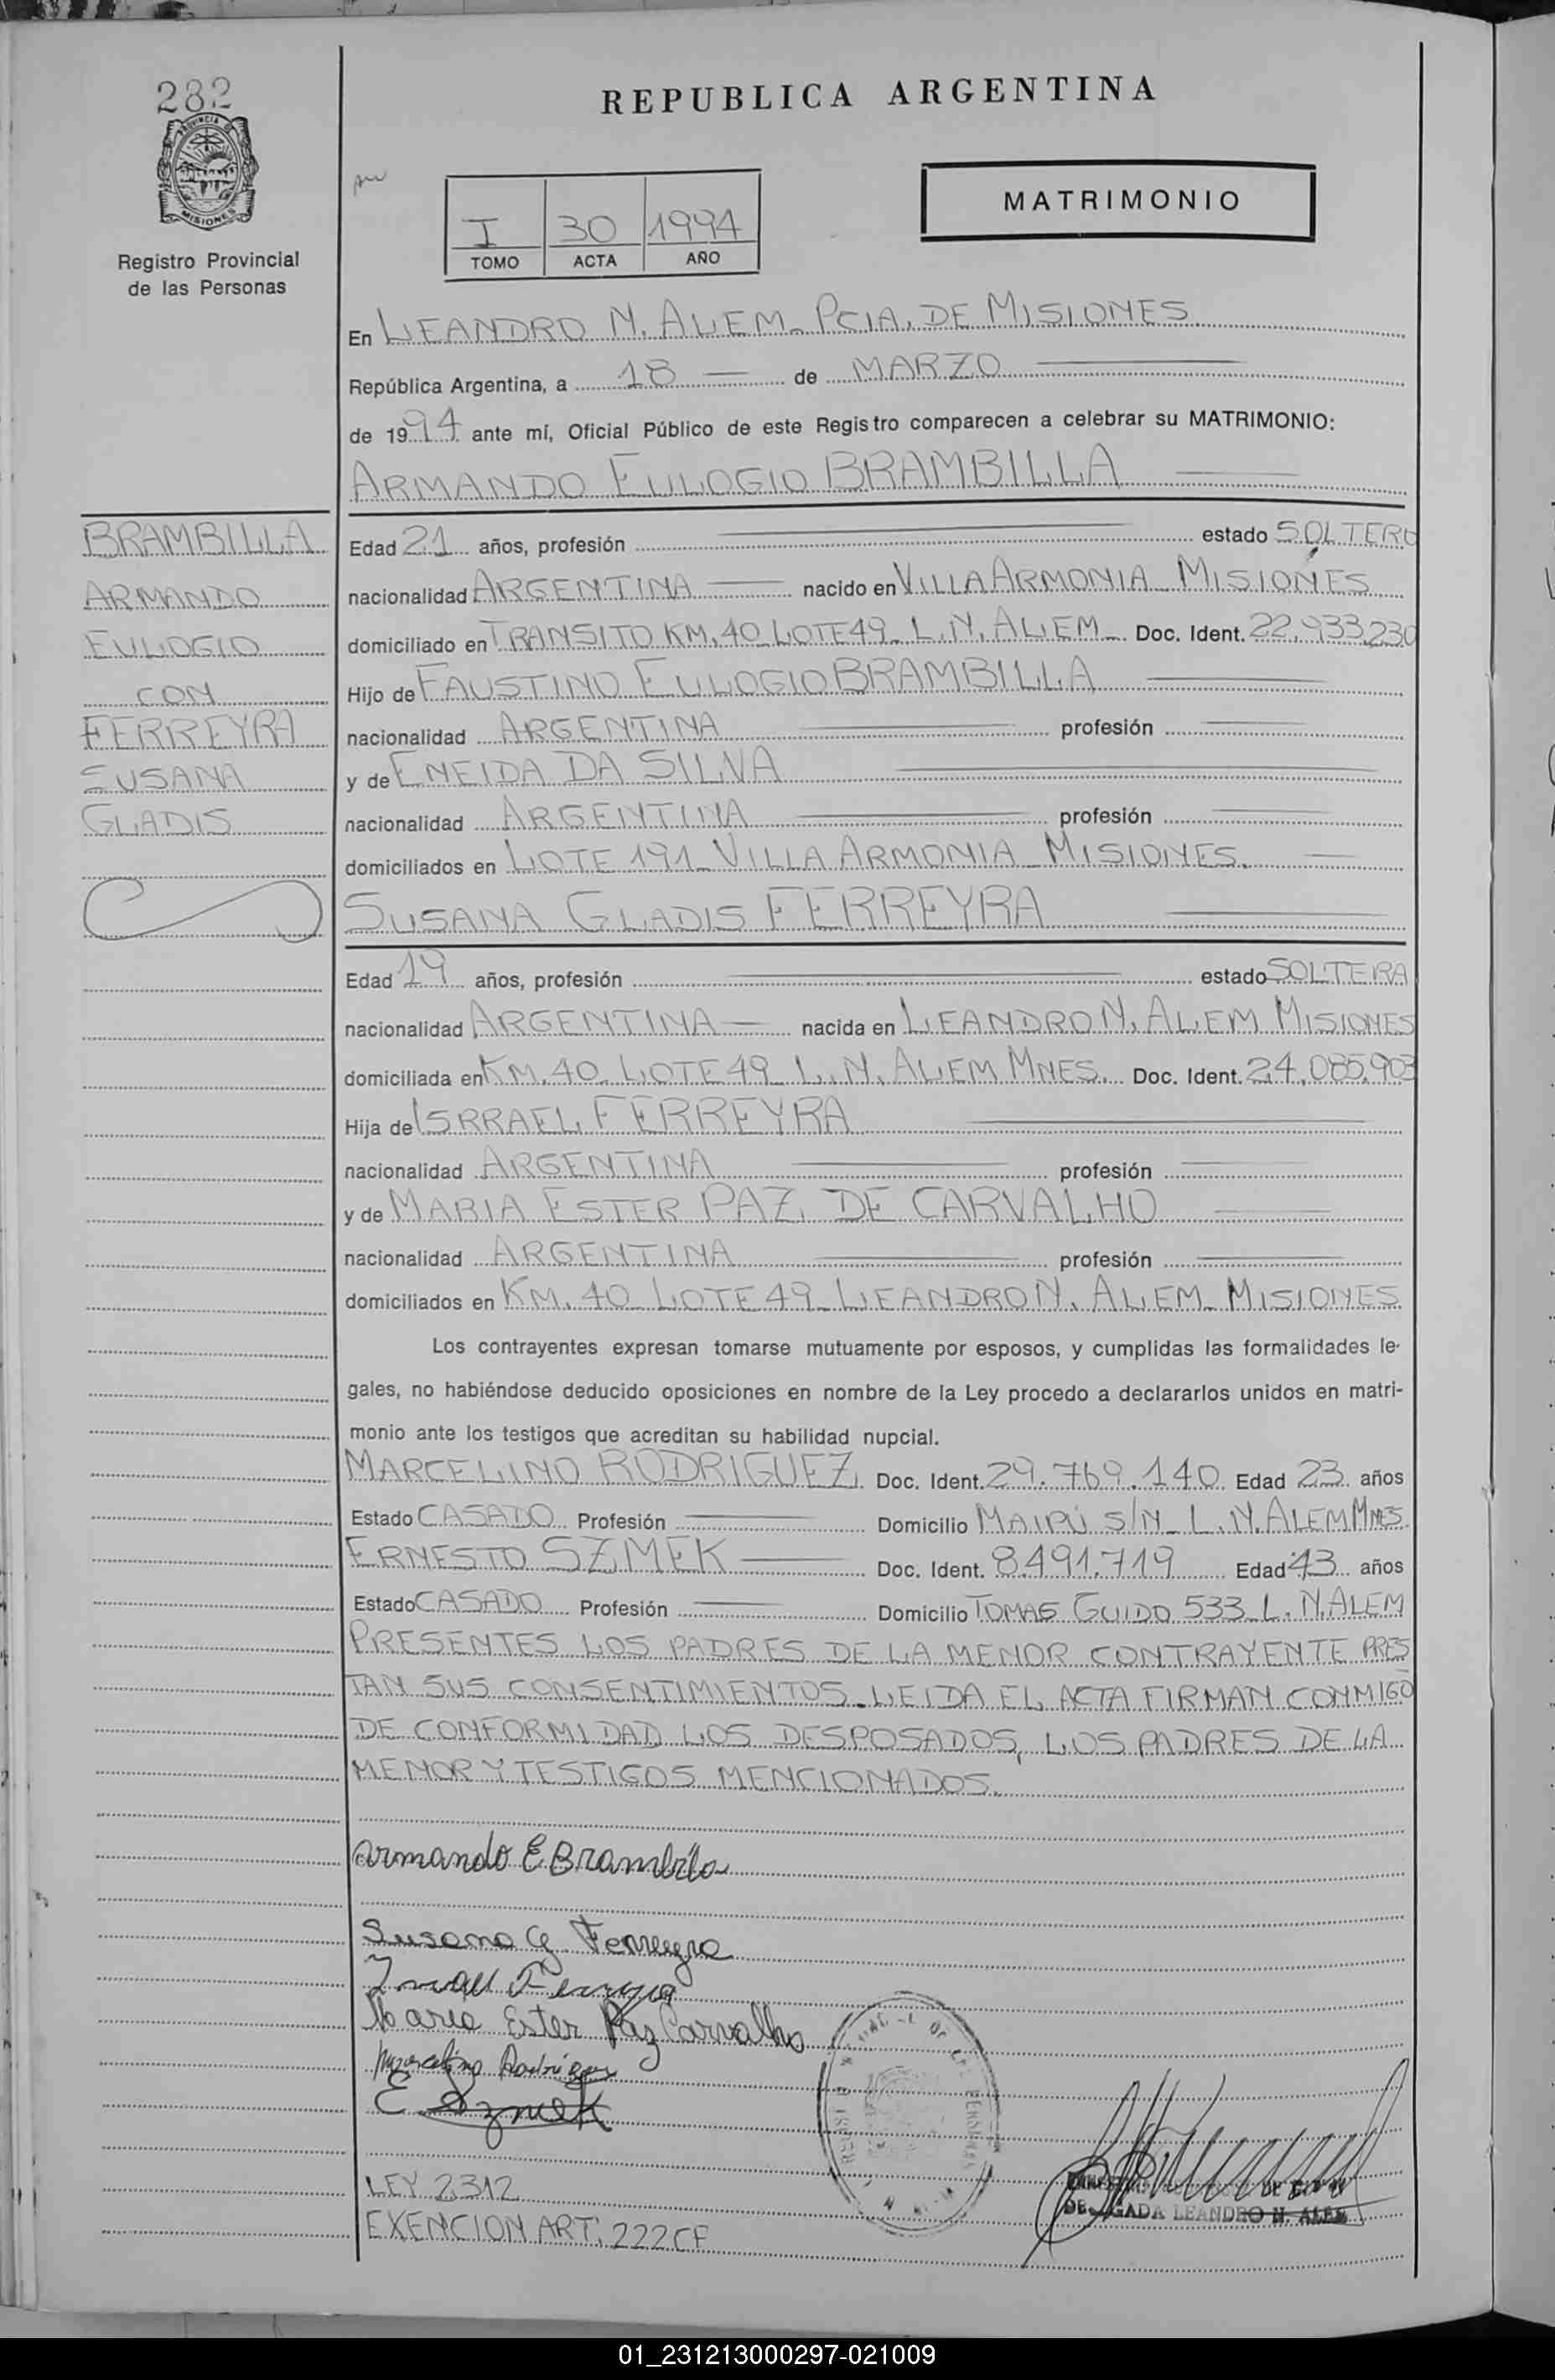 282
PROVINCIA DE
MISIONES
Registro Provincial
de las Personas
REPUBLICA ARGENTINA
I 30 1994
TOMO ACTA AÑO
MATRIMONIO
En LEANDRO N. ALEM. PCIA. DE MISIONES
República Argentina, a 18 — de MARZO
de 1994 ante mí, Oficial Público de este Registro comparecen a celebrar su MATRIMONIO:
ARMANDO EULOGIO BRAMBILLA
BRAMBILLA
ARMANDO
EULOGIO
CON
FERREYRA
SUSANA
GLADIS
Edad 21 años, profesión estado SOLTERO
nacionalidad ARGENTINA — nacido en VILLA ARMONIA - MISIONES
domiciliado en TRANSITO KM. 40 LOTE 49 - L. N. ALEM - Doc. Ident. 22.933.230
Hijo de FAUSTINO EULOGIO BRAMBILLA
nacionalidad ARGENTINA profesión
y de ENEIDA DA SILVA
nacionalidad ARGENTINA profesión
domiciliados en LOTE 191 - VILLA ARMONIA - MISIONES.
SUSANA GLADIS FERREYRA
Edad 19 años, profesión estado SOLTERA
nacionalidad ARGENTINA — nacida en LEANDRO N. ALEM MISIONES
domiciliada en KM. 40 - LOTE 49 - L. N. ALEM MNES. Doc. Ident. 24.085.903
Hija de ISRRAEL FERREYRA
nacionalidad ARGENTINA profesión
y de MARIA ESTER PAZ DE CARVALHO
nacionalidad ARGENTINA profesión
domiciliados en KM. 40 - LOTE 49 - LEANDRO N. ALEM - MISIONES
Los contrayentes expresan tomarse mutuamente por esposos, y cumplidas las formalidades le-
gales, no habiéndose deducido oposiciones en nombre de la Ley procedo a declararlos unidos en matri-
monio ante los testigos que acreditan su habilidad nupcial.
MARCELINO RODRIGUEZ Doc. Ident. 29.769.140 Edad 23 años
Estado CASADO Profesión Domicilio MAIPÚ S/N - L. N. ALEM MNES
ERNESTO SZMEK Doc. Ident. 8.491.719 Edad 43 años
Estado CASADO Profesión Domicilio TOMAS GUIDO 533 - L. N. ALEM
PRESENTES LOS PADRES DE LA MENOR CONTRAYENTE PRES
TAN SUS CONSENTIMIENTOS. LEIDA EL ACTA FIRMAN CONMIGO
DE CONFORMIDAD LOS DESPOSADOS, LOS PADRES DE LA
MENOR Y TESTIGOS MENCIONADOS.
Armando E Brambila
Susana G Ferreyra
Ferreyra
Maria Ester Paz Carvalho
Marcelino Rodriguez
E Szmek
LEY 2312
EXENCION ART. 222 CF
LEANDRO N. ALEM
01_231213000297-021009